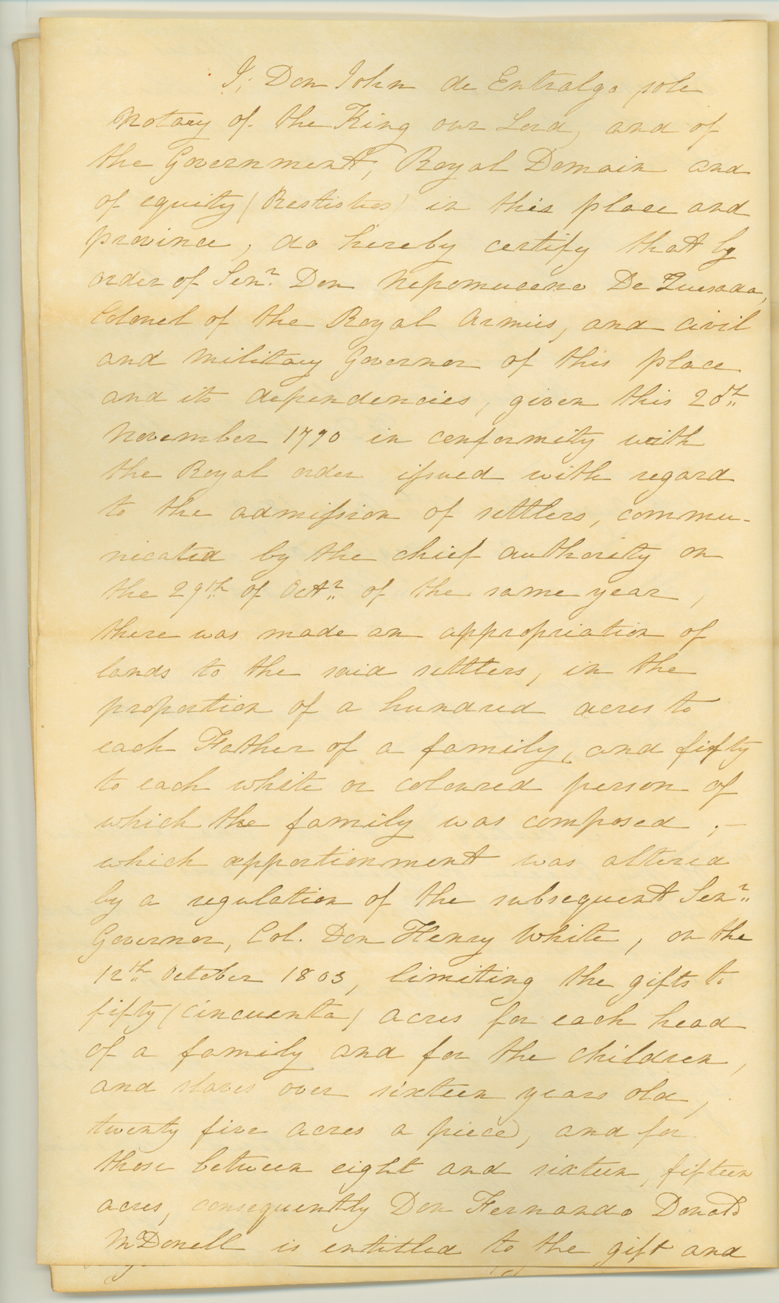 I, Don John de Entralgo sole
Notary of the King our Lord, and of
the Government, Royal Domain and
of equity (Restistus) in this place and
province, do hereby certify that by
order of Senr. Don Nepomuceno De Quesada,
Colonel of the Royal Armies, and civil
and military Governor of this place
and its dependencies, given this 20th
November 1790 in conformity with
the Royal order issued with regard
to the admission of settlers, commu-
nicated by the chief authority on
the 29th of Octr. of the same year,
there was made an appropriation of
lands to the said settlers, in the
proportion of a hundred acres to
each Father of a family, and fifty
to each white or coloured person of
which the family was composed ;-
which apportionment was altered
by a regulation of the subsequent Senr.
Governor, Col. Don Henry White, on the
12th October 1803, limiting the gifts to
fifty (cincuenta) acres for each head
of a family and for the children,
and slaves over sixteen years old,
twenty five acres a piece, and for
those between eight and sixteen, fifteen
acres, consequently Don Fernando Donald
McDonell is entitled to the gift and